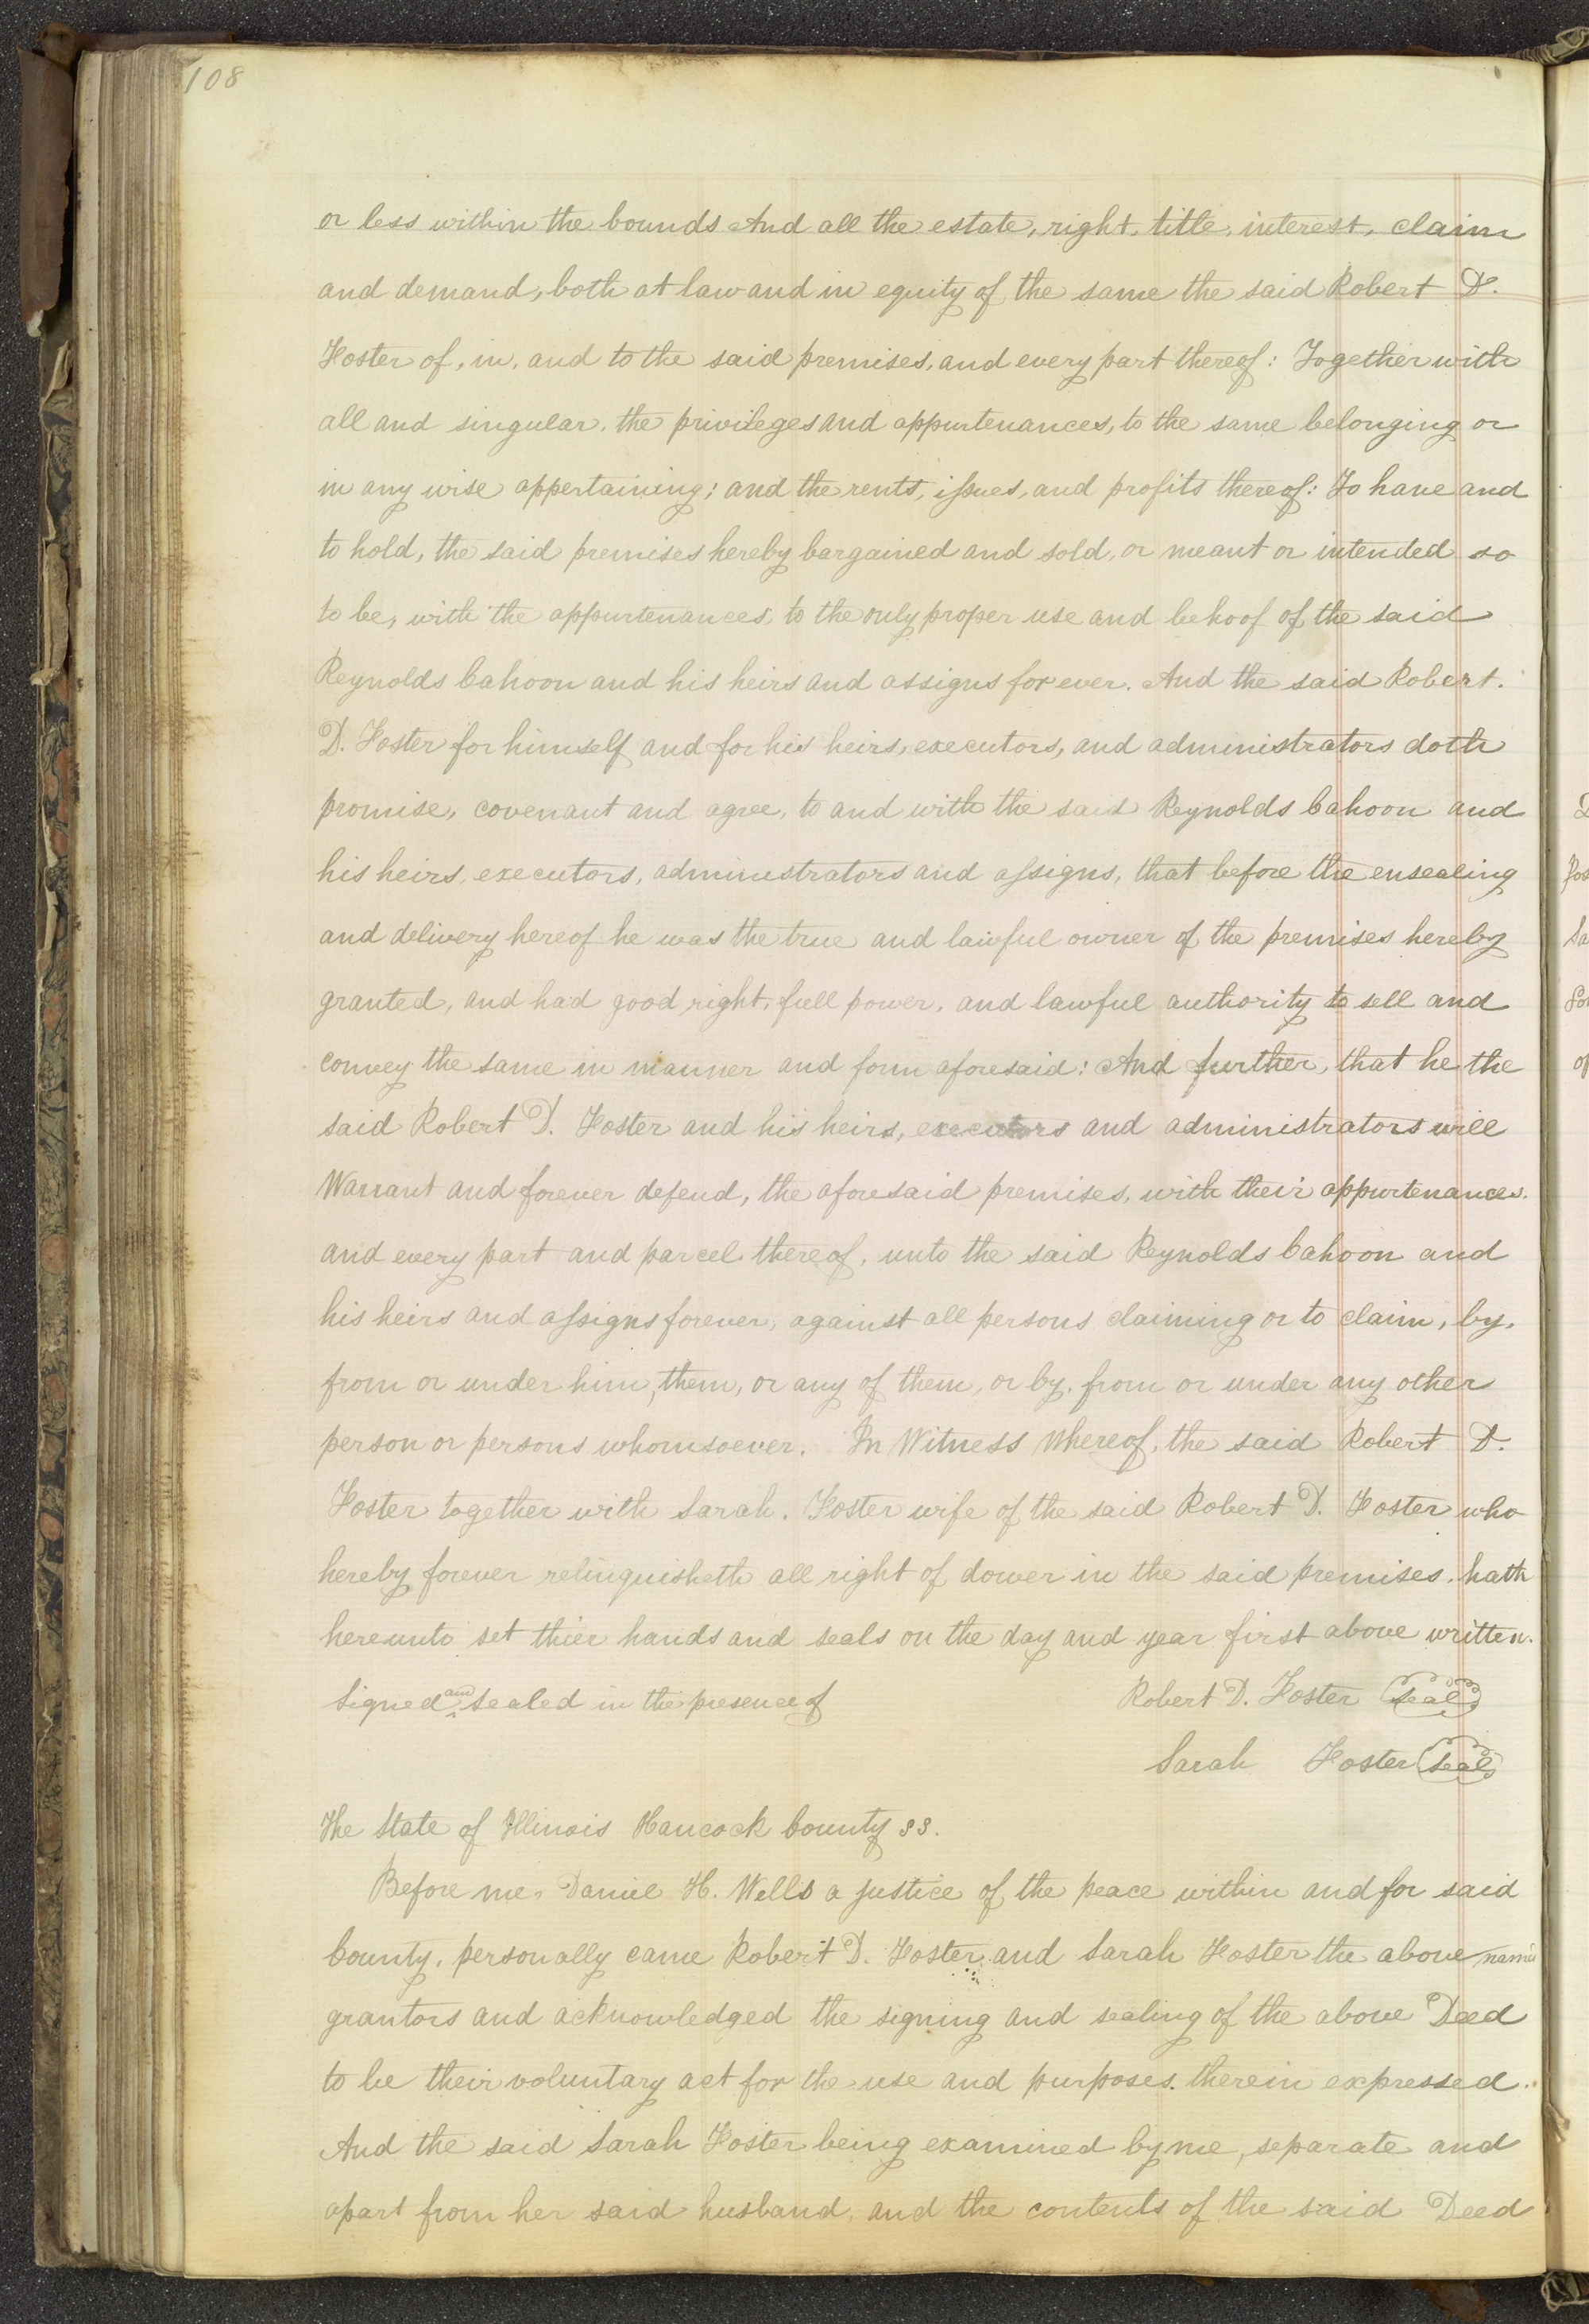 108
or less within the bounds And all the estate, right, title, interest, claim
and demand, both at law and in equity of the same the said Robert D.
Foster of, in, and to the said premises, and every part thereof: Together with
all and singular, the privileges and appurtenances, to the same belonging or
in any wise appertaining; and the rents, issues, and profits thereof: To have and
to hold, the said premises hereby bargained and sold, or meant or intended so
to be, with the appurtenances, to the only proper use and behoof of the said
Reynolds Cahoon and his heirs and assigns for ever. And the said Robert.
D. Foster for himself and for his heirs, executors, and administrators doth
promise, covenant and agree, to and with the said Reynolds Cahoon and
his heirs, executors, administrators and assigns, that before the ensealing
and delivery hereof he was the true and lawful owner of the premises hereby
granted, and had good right, full power, and lawful authority to sell and
convey the same in manner and form aforesaid: And further, that he the
said Robert D. Foster and his heirs, executors and administrators will
Warrant and forever defend, the aforesaid premises, with their appurtenances.
and every part and parcel thereof, unto the said Reynolds Cahoon and
his heirs and assigns forever, against all persons claiming or to claim, by,
from or under him, them, or any of them, or by, from or under any other
person or persons whomsoever. In Witness Whereof, the said Robert D.
Foster together with Sarah. Foster wife of the said Robert D. Foster who
hereby forever relinquisheth all right of dower in the said premises, hath
hereunto set thier hands and seals on the day and year first above written.
Signed and Sealed in the presence of Robert D. Foster Seal
Sarah Foster Seal
The State of Illinois Hancock County SS.
Before me, Daniel H. Wells a justice of the peace within and for said
County, personally came Robert D. Foster and Sarah Foster the above named
grantors and acknowledged the signing and sealing of the above Deed
to be their voluntary act for the use and purposes. therein expressed.
And the said Sarah Foster being examined by me, separate and
apart from her said husband, and the contents of the said Deed